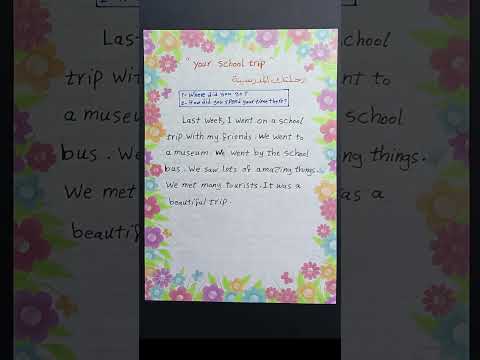 " Your school trip "
رحلتك المدرسية
1- Where did you go?
2- How did you spend your time there?
Last week, I went on a school
trip with my friends. We went to
a museum. We went by the school
bus. We saw lots of amazing things.
We met many tourists. It was a
beautiful trip.